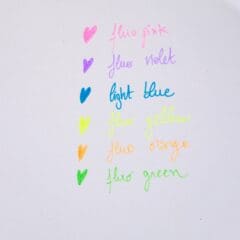 fluo pink
fluo violet
light blue
fluo yellow
fluo orange
fluo green